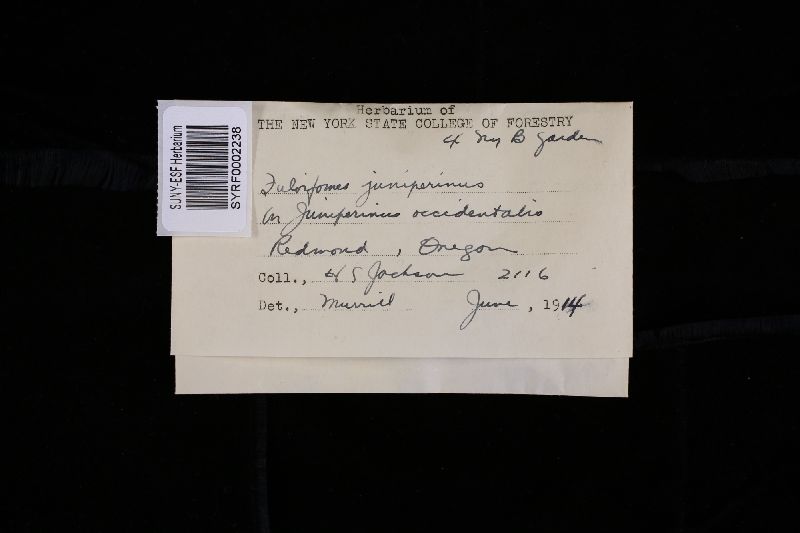 SUNY-ESF Herbarium
SYRF0002238
Herbarium of
THE NEW YORK STATE COLLEGE OF FORESTRY
Ny B Garden
Fulvifomes juniperinus
on Juniperinus occidentalis
Redmond, Oregon
Coll., H S Jackson 2116
Det., Murrill June, 1914